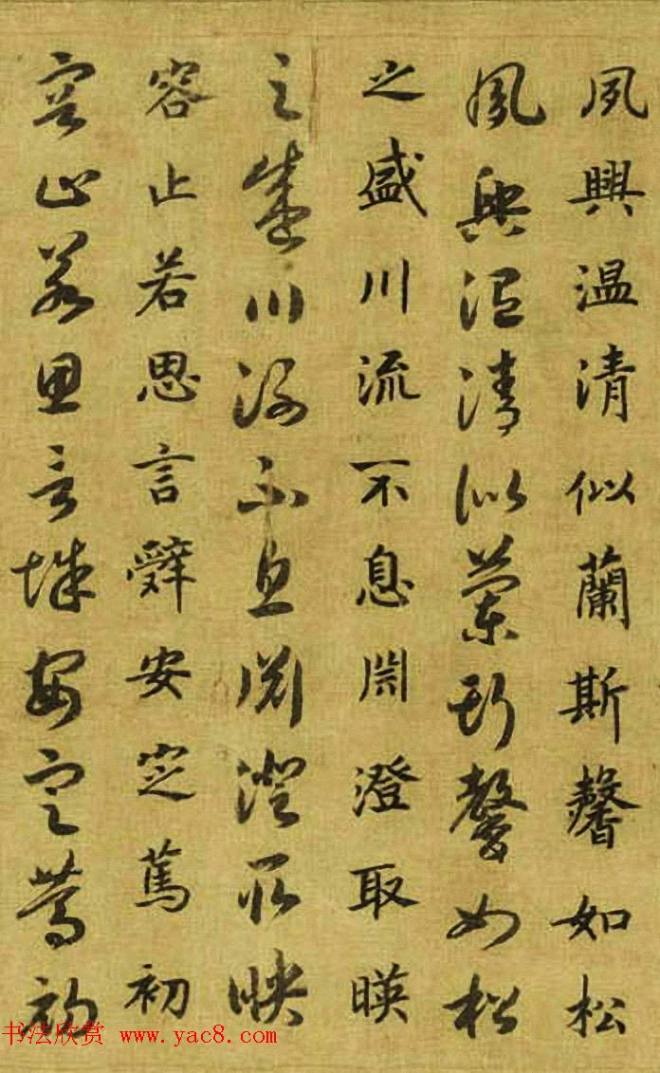 夙興温清似蘭斯馨如松
夙興温清似蘭斯馨如松
之盛川流不息淵澄取暎
之盛川流不息淵澄取映
容止若思言辭安定篤初
容止若思言辭安定篤初
书法欣赏 www.yac8.com